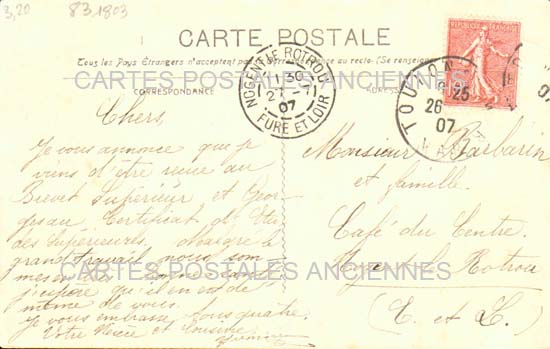 3,20
83 1803
CARTE POSTALE
Tous les Pays Étrangers n'acceptent pas la correspondance au recto. (Se renseigner
CORRESPONDANCE
ADRESSE
RÉPUBLIQUE FRANÇAISE
NOGENT-LE-ROTROU
11 30
27 -7
07
EURE ET LOIR
TOULON
25
26
07
VAR
07
CARTES POSTALES ANCIENNES
Chers
Je vous annonce que je
viens d'être reçue au
Brevet Supérieur et Geor-
ges au Certificat d'Etu
des Supérieures. Malgré le
grand travail nous som
mes
j'espère qu'il en est de
même de vous.
Je vous embrasse tous quatre.
Votre Nièce et Cousine.
Monsieur Barbarin
et famille.
Café du Centre
Nogent le Rotrou
(E. et L.)
CARTES POSTALES ANCIENNES